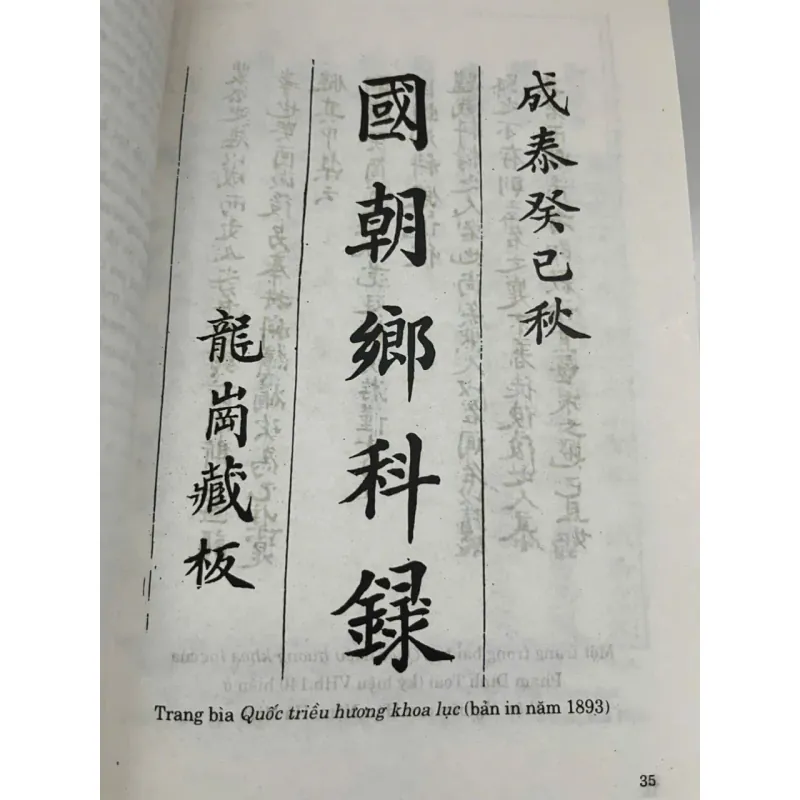 成泰癸巳秋
國朝鄉科録
龍崗藏板
Trang bìa Quốc triều hương khoa lục (bản in năm 1893)
35